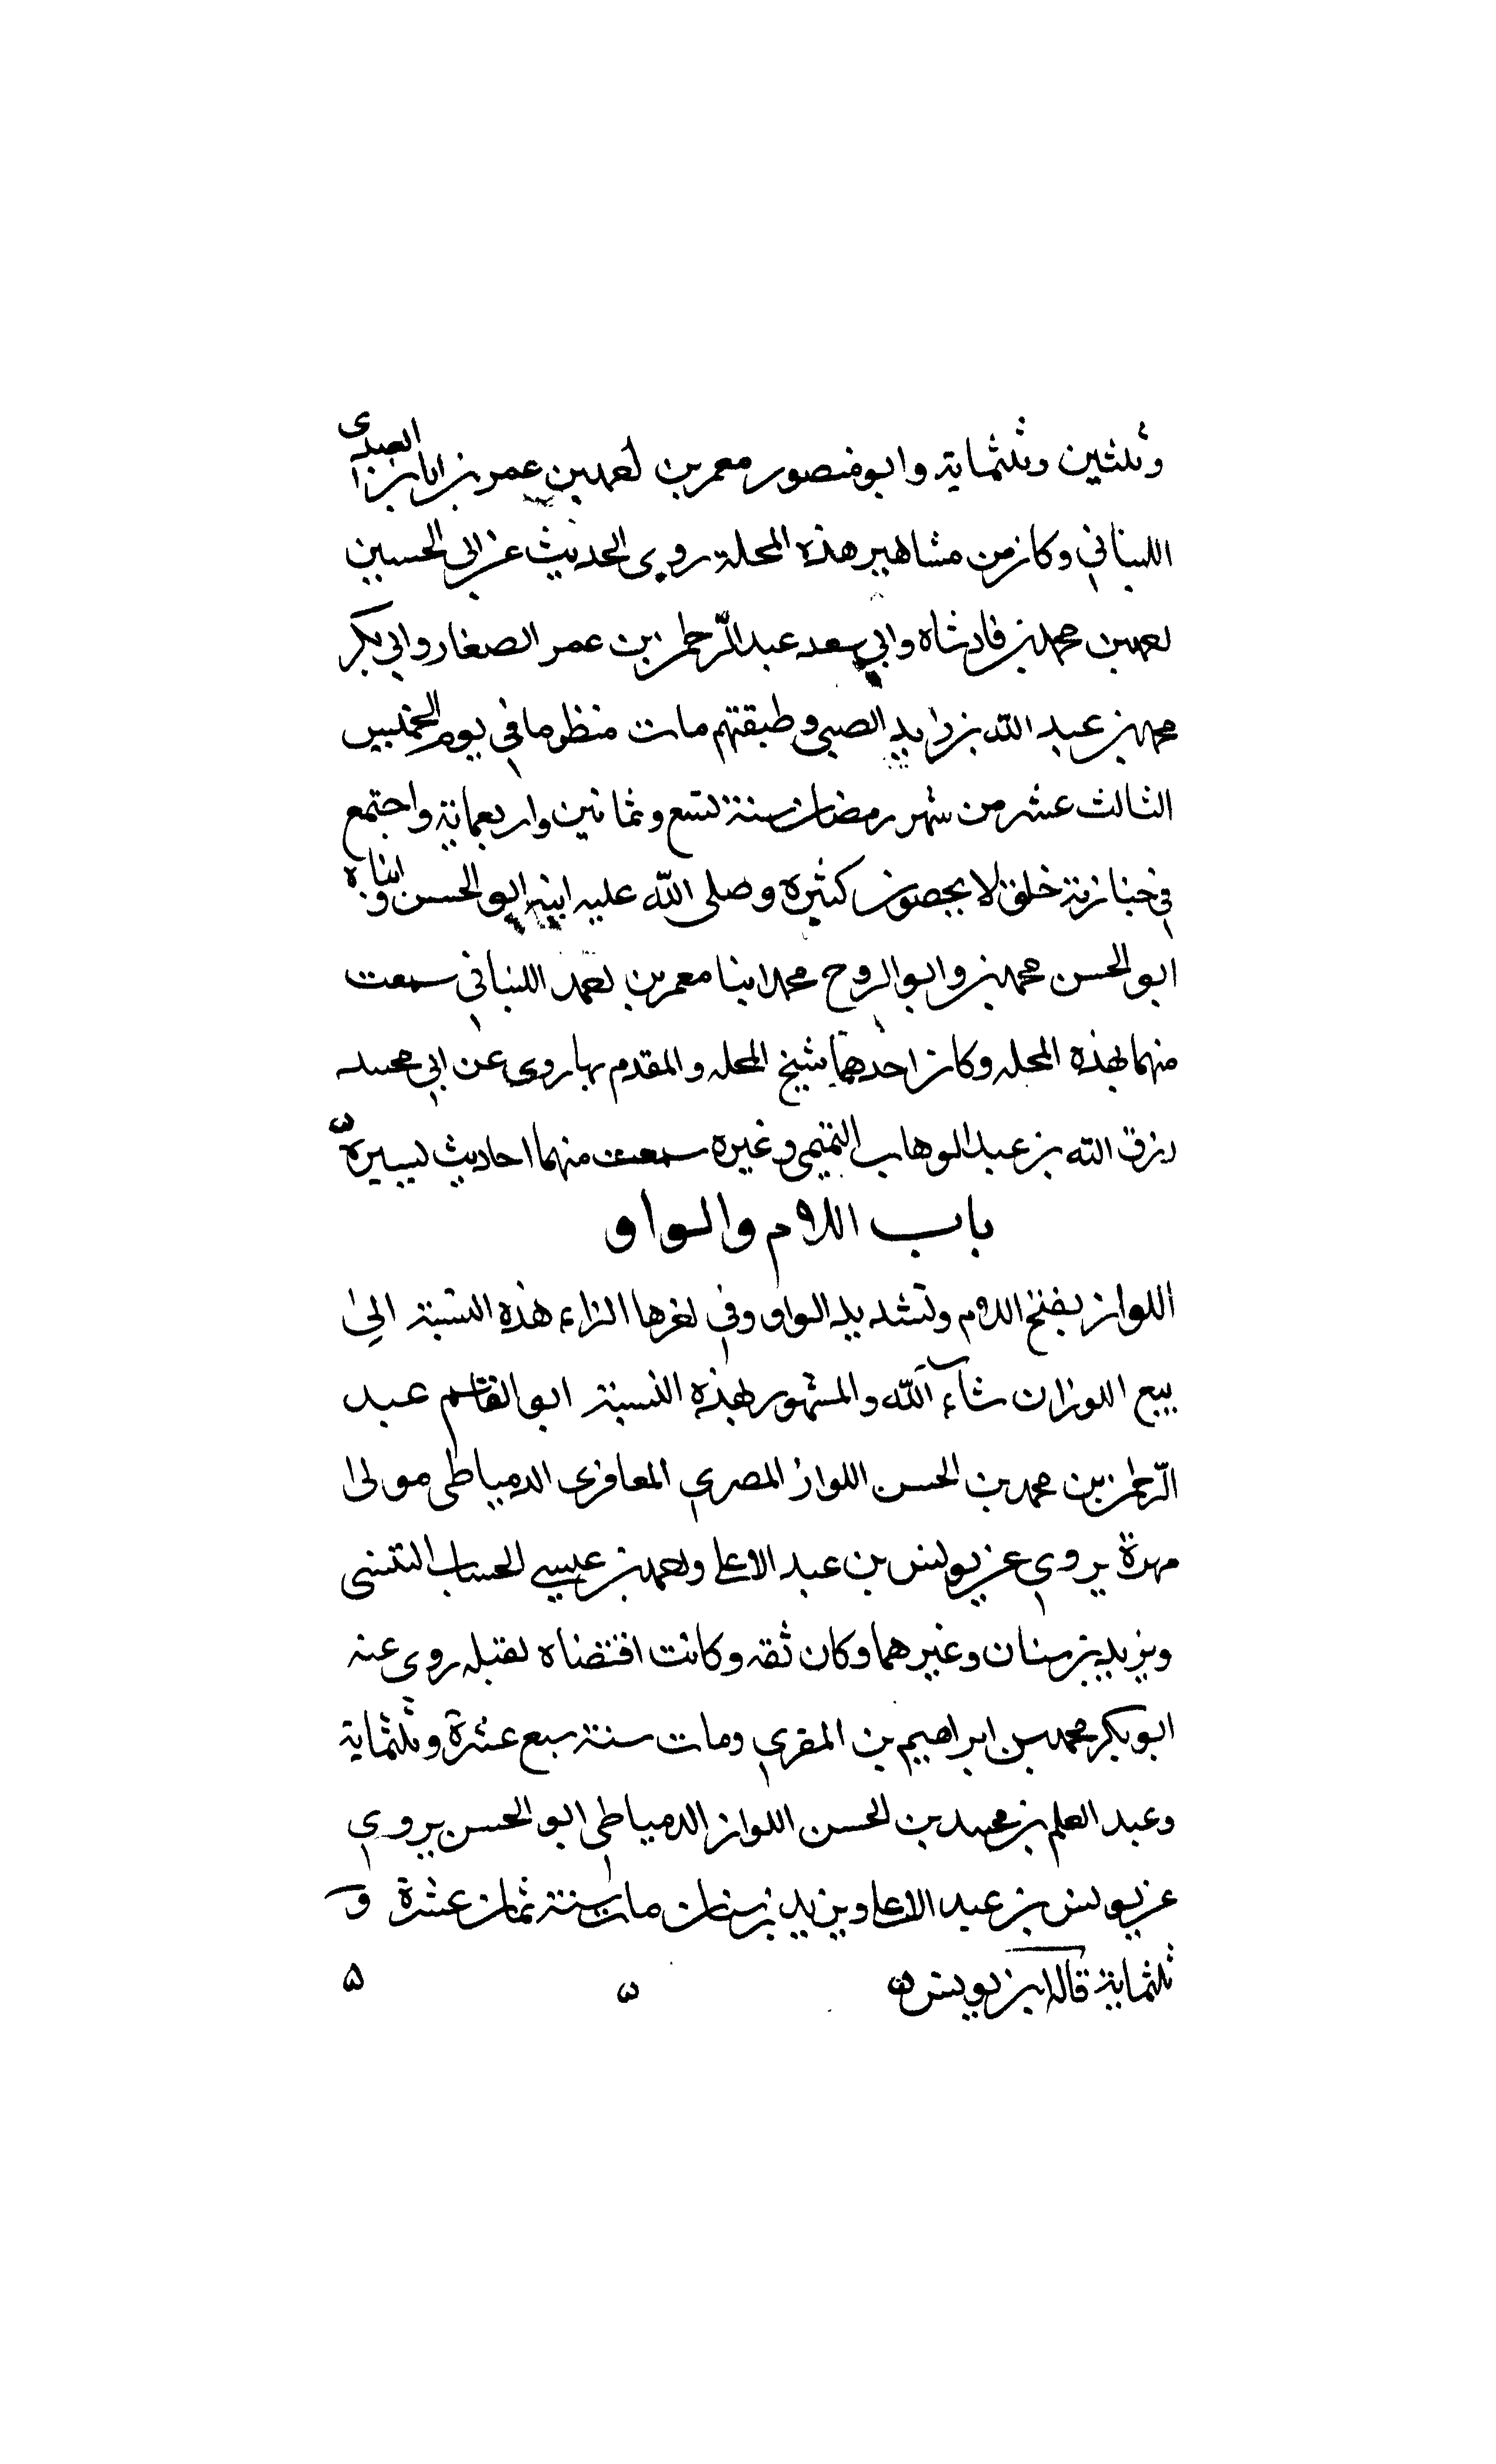 وثلثين وثلثماية وابو منصور معمر بن احمد بن عمر بن ابان العبدى
اللبناني وكان من مشاهير هذه المحلة روى الحديث عن ابى الحسين
احمد بن محمد بن فادشاه وابي سعد عبد الرحمن بن عمر الصفار وابي بكر
محمد بن عبد الله بن زايد الضبى وطبقتهم مات منظوما في يوم الخميس
الثالث عشر من شهر رمضان سنة تسع وثمانين واربعماية واجتمع
في جنازته خلق لا يحصون كثرة وصلى الله عليه ابنه ابو الحسن وابناه
ابو الحسن محمد بن وابو الروح محمد ابنا معمر بن احمد اللبناني سمعت
منهما بهذه المحله وكان احدهما شيخ المحله والمقدم بها روى عن ابي محمد
رزق الله بن عبد الوهاب التميمى وغيره سمعت منهما احاديث يسيرة
باب اللام والواو
اللواز بفتح اللام وتشديد الواو وفي اخرها الزاء هذه النسبة الى
بيع اللوز ان شاء الله والمشهور بهذه النسبة ابو القاسم عبد
الرحمن بن محمد بن الحسن اللواز المصري المعافرى الدمياطى مولى
مهرة يروي عن يونس بن عبد الاعلى واحمد بن عيسى الحساب التنيسى
ويزيد بن سنان وغيرهما وكان ثقه وكانت القضاه تقبله روى عنه
ابو بكر محمد بن ابراهيم بن المقري ومات سنة سبع عشرة وثلثماية
وعبد العلم بن محمد بن الحسن اللواز الدمياطي ابو الحسن يروي
عن يونس بن عبد الاعلى ويزيد بن سنان مات سنة ثمان عشرة و
ثلثماية قاله ابن يونس